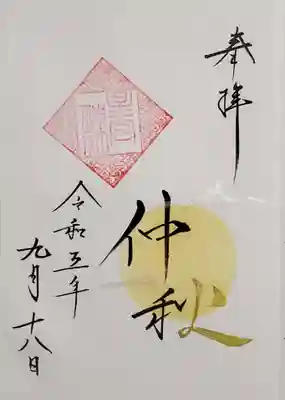 奉拝
仲秋
令和五年
九月十八日